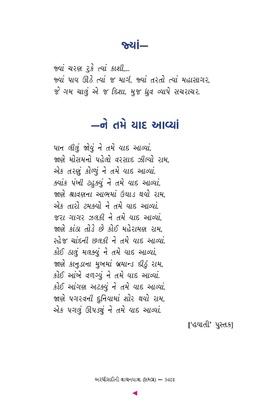 જ્યાં—
જ્યાં ચરણ રુકે ત્યાં કાશી...
જ્યાં પાવ ઊઠે ત્યાં જ માર્ગ, જ્યાં તરતો ત્યાં મહાસાગર,
જે ગમ ચાલું એ જ દિશા, મુજ ધ્રુવ વ્યાપે સચરાચર.
—ને તમે યાદ આવ્યાં
પાન લીલું જોયું ને તમે યાદ આવ્યાં.
જાણે મોસમનો પહેલો વરસાદ ઝીલ્યો રામ,
એક તરણું કોળ્યું ને તમે યાદ આવ્યાં.
ક્યાંક પંખી ટહુક્યું ને તમે યાદ આવ્યાં.
જાણે શ્રાવણના આભમાં ઉઘાડ થયો રામ,
એક તારો ટમક્યો ને તમે યાદ આવ્યાં.
જરા ગાગર ઝલકી ને તમે યાદ આવ્યાં.
જાણે કાંઠા તોડે છે કોઈ મહેરામણ રામ,
સ્હેજ ચાંદની છલકી ને તમે યાદ આવ્યાં.
કોઈ ઠાલું મલક્યું ને તમે યાદ આવ્યાં.
જાણે કાનુડાના મુખમાં બ્રહ્માંડ દીઠું રામ,
કોઈ આંખે વળગ્યું ને તમે યાદ આવ્યાં.
કોઈ આંગણ અટક્યું ને તમે યાદ આવ્યાં.
જાણે પગરવની દુનિયામાં શોર થયો રામ,
એક પગલું ઊપડ્યું ને તમે યાદ આવ્યાં.
['હયાતી' પુસ્તક]
અરધીસદીની વાચનયાત્રા